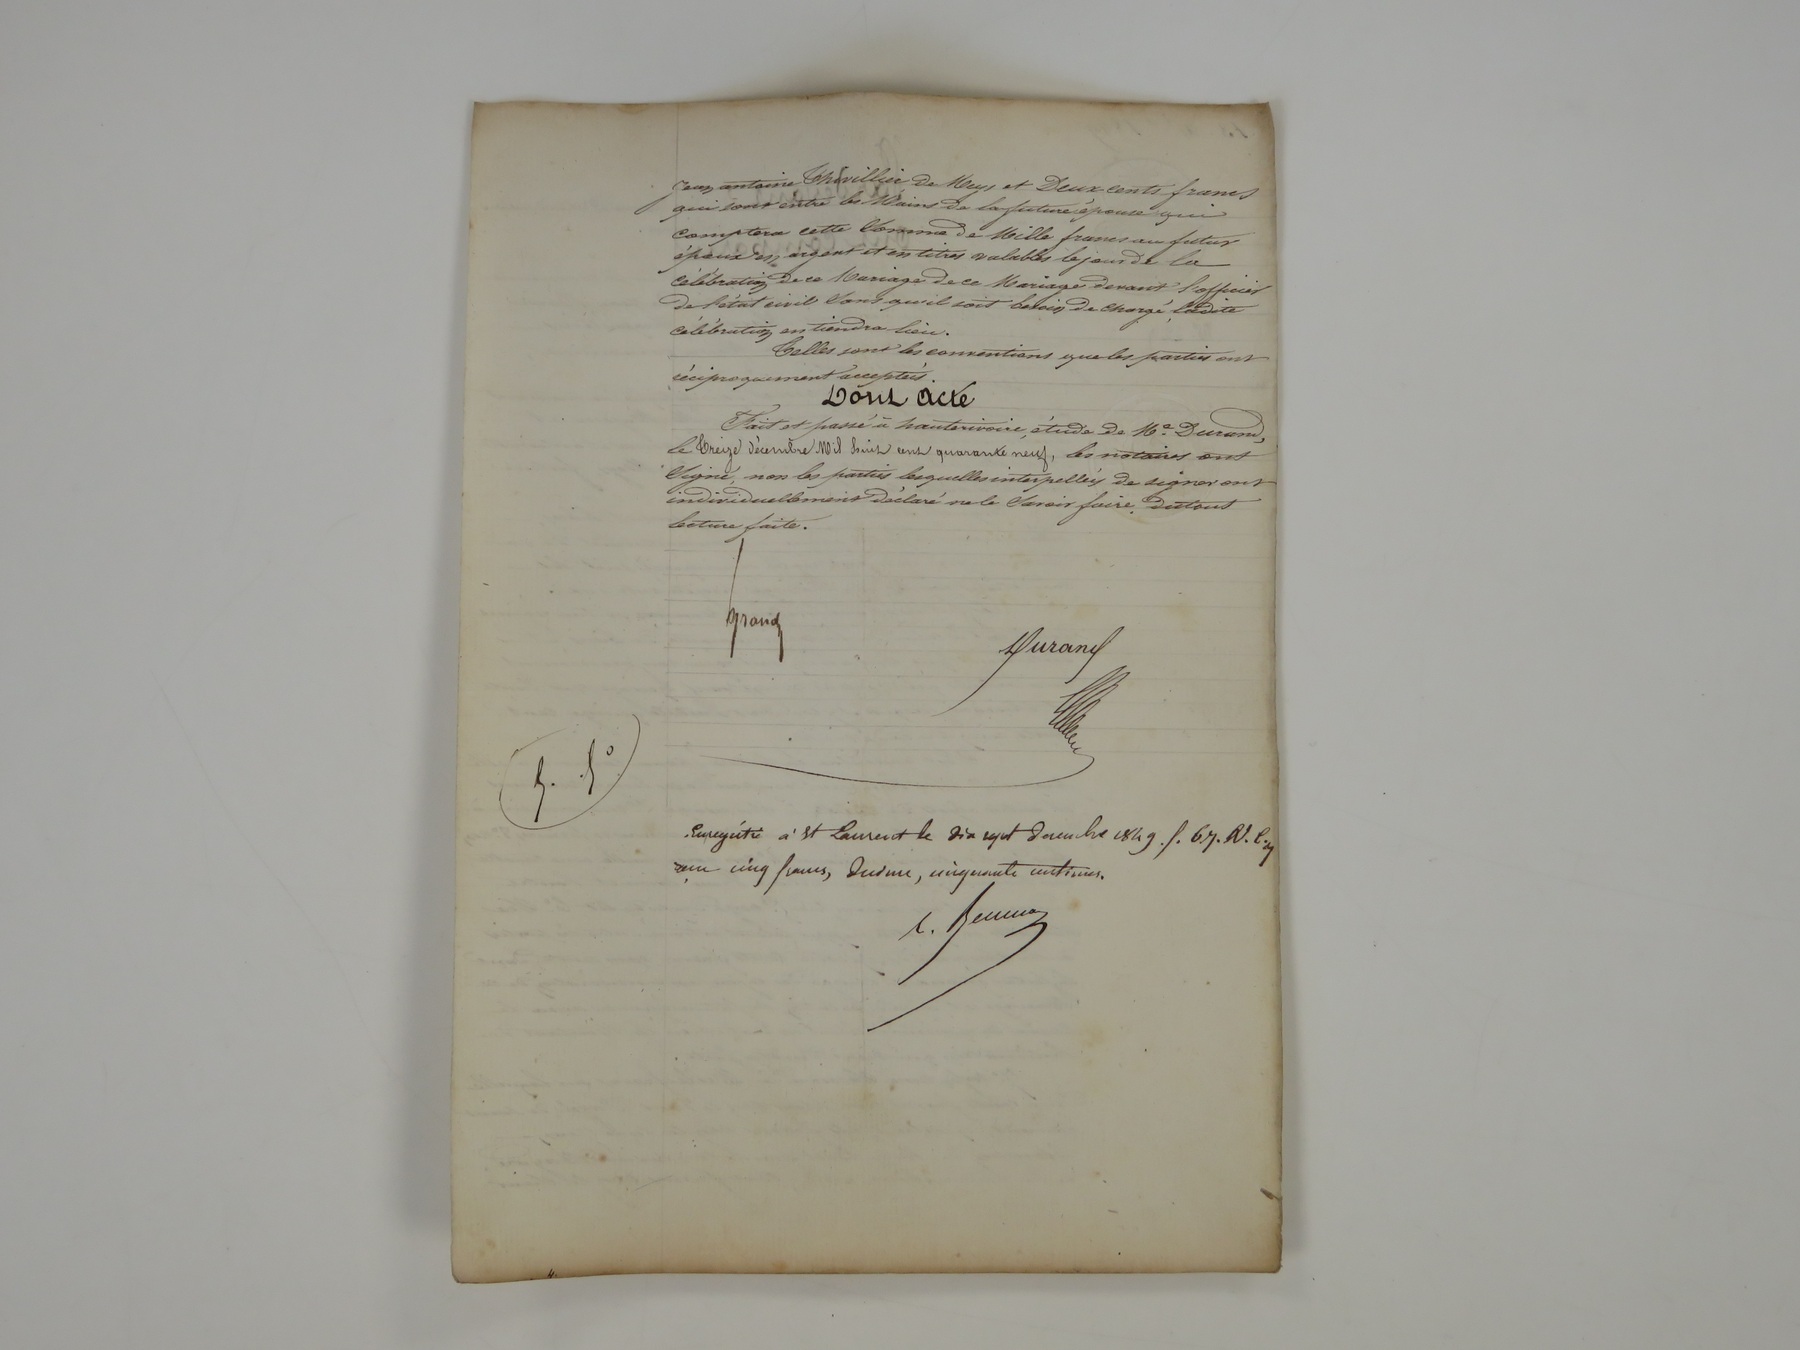 jean antoine Thévillier de Meys et Deux cents francs
qui sont entre les Mains de la future épouse qui
comptera cette Somme de Mille francs au futur
époux en argent et en titres valables le jour de la
célébration de ce Mariage de ce Mariage devant l'officier
de l'état civil Sans qu'il soit besoin de charge, ladite
célébration en tiendra lieu.
Telles sont les conventions que les parties ont
réciproquement acceptés.
Dont Acte
Fait et passé à hauterivoire, étude de Me Durand,
le Treize décembre Mil huit cent quarante neuf, les notaires ont
Signé, non les parties lesquelles interpellés de signer ont
individuellement déclaré ne le Savoir faire, du tout
lecture faite.
Grand
Durand
Enregistré à St Laurent le dix sept décembre 1849. f. 67. R. C.
cinq francs, décime, cinquante centimes.